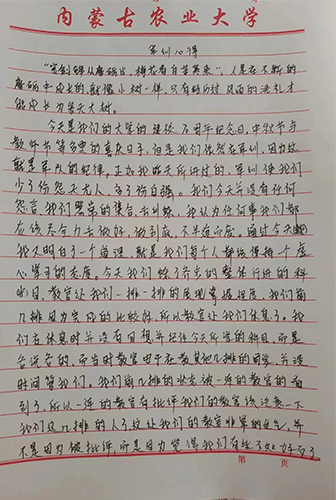 内蒙古农业大学
军训心得
"宝剑锋从磨砺出，梅花香自苦寒来"，人是在不断的
磨砺中成长的，就像小树一样，只有经历过风雨的洗礼才
能成长为参天大树。
今天是我们的大学的建校 周年纪念日，中秋节与
教师节等多重的喜庆日子，但是我们依然在军训，因为这
就是军队的纪律，正如我昨天所讲过的，军训使我们
少了份怨天尤人，多了份自强，我们今天并没有任何
怨言，我们照常的集合，去训练，我认为任何事我们都
应该尽全力去做好，做到底，不半途而废，通过今天的
我又明白了一个道理，就是我们每个人都该得拥一个虚
心学习的态度，今天我们练了各步的整体行进的科
目，教官让我们一排一排的展现掌握程度，我们前
几排因为完成的比较好，所以教官让我们休息了。我
们在休息时并没有回想并记住今天所学的科目，而是
各说各的，而当时教官由于在教其他几排的同学，并没
时间管我们。我们前几排的状态被一连的教官的看
到了，所以一连的教官有批评我们的教官该注意一下
我们这几排的人了，这让我们的教官非常的生气，并
不是因为被批评，而是因为觉得我们有些
第 页